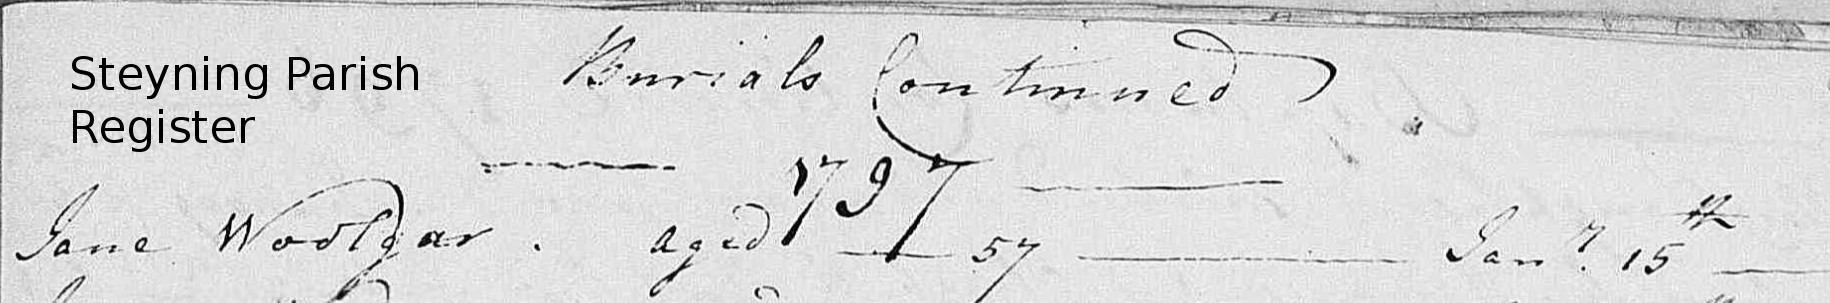 Steyning Parish
Register
Burials Continued
1797
Jane Woolgar. aged — 57 — Jany. 15th —